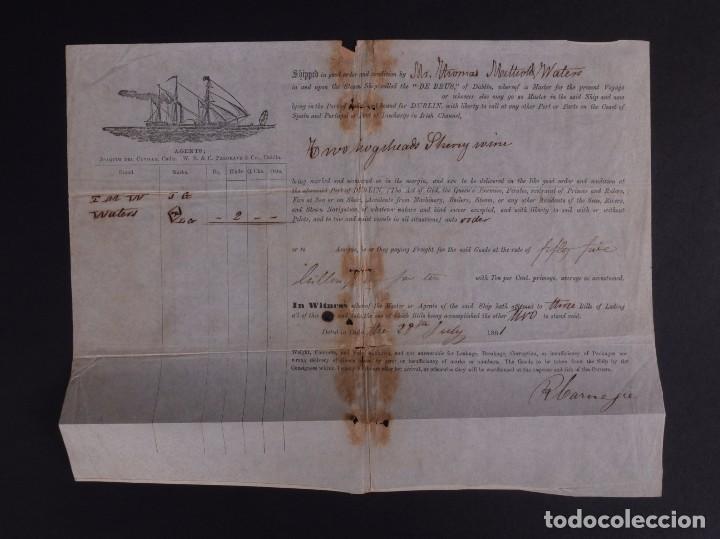 AGENTS;
JOAQUIN DEL CUVILLO, Cadiz. W. S. & C. PALGRAVE & Co., Dublin.
Brand. Marks. Hhds
T M W J G
Waters - 2 - -
Shipped in good order and condition by Mr. Thomas Waters
in and upon the Steam Ship called the "DE BRUS," of Dublin, whereof is Master for the present Voyage
or whoever else may go as Master in the said Ship and now
lying in the Port of bound for DUBLIN, with liberty to call at any other Port or Ports on the Coast of
Spain and Portugal or Port of Discharge in Irish Channel,
Two hogsheads Sherry wine
being marked and numbered as in the margin, and are to be delivered in the like good order and condition at
the aforesaid Port of DUBLIN, (The Act of God, the Queen's Enemies, Pirates, restraint of Princes and Rulers,
Fire at Sea or on Shore, Accidents from Machinery, Boilers, Steam, or any other Accidents of the Seas, Rivers,
and Steam Navigation of whatever nature and kind soever excepted, and with liberty to sail with or without
Pilots, and to tow and assist vessels in all situations) unto order
or to Assigns, he or they paying Freight for the said Goods at the rate of fifty five
ten with Ten per Cent. primage, average as accustomed.
In Witness whereof the Master or Agents of the said Ship hath agreed to three Bills of Lading
all of this and date, the one of which Bills being accomplished the other two to stand void.
Dated in Cadiz the 29th July 1861
Weight, Contents, and Value unknown, and not answerable for Leakage, Breakage, Corruption, or insufficiency of Packages nor
wrong delivery of Goods caused by error or insufficiency of marks or numbers. The Goods to be taken from the Ship by the
Consignees within after her arrival, or otherwise they will be warehoused at the expense and risk of the Owners.
R Carnegie
todocoleccion